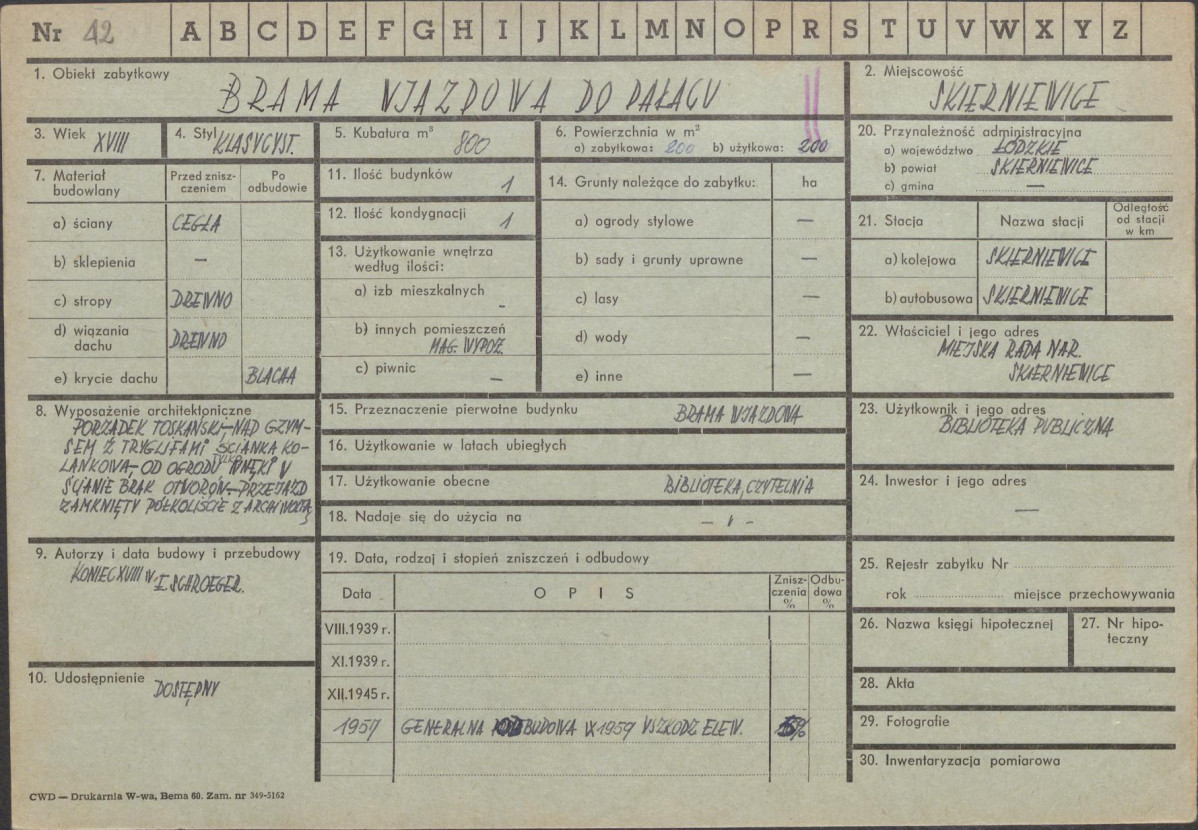 Nr 42 A B C D E F G H I J K L M N O P R S T U V W X Y Z
1. Obiekt zabytkowy
BRAMA WJAZDOWA DO PAŁACU
2. Miejscowość
SKIERNIEWICE
3. Wiek XVIII
4. Styl KLASYCYST.
5. Kubatura m³ 800
6. Powierzchnia w m²
a) zabytkowa: 200 b) użytkowa: 200
20. Przynależność administracyjna
a) województwo ŁÓDZKIE
b) powiat SKIERNIEWICE
c) gmina —
7. Materiał budowlany
Przed zniszczeniem
Po odbudowie
a) ściany CEGŁA
b) sklepienia —
c) stropy DREWNO
d) wiązania dachu DREWNO
e) krycie dachu BLACHA
11. Ilość budynków 1
12. Ilość kondygnacji 1
13. Użytkowanie wnętrza
według ilości:
a) izb mieszkalnych -
b) innych pomieszczeń
MAG. WYPOŻ.
c) piwnic —
14. Grunty należące do zabytku: ha
a) ogrody stylowe —
b) sady i grunty uprawne —
c) lasy —
d) wody —
e) inne —
21. Stacja Nazwa stacji
Odległość
od stacji
w km
a) kolejowa SKIERNIEWICE
b) autobusowa SKIERNIEWICE
22. Właściciel i jego adres
MIEJSKA RADA NAR.
SKIERNIEWICE
8. Wyposażenie architektoniczne
PORZĄDEK TOSKAŃSKI, NAD GZYM-
SEM Z TRYGLIFAMI ŚCIANKA KO-
LANKOWA, OD OGRODU TYLKO WNĘKI W
ŚCIANIE BRAK OTWORÓW—PRZEJAZD
ZAMKNIĘTY PÓŁKOLIŚCIE Z ARCHIWOLTĄ
15. Przeznaczenie pierwotne budynku BRAMA WJAZDOWA
16. Użytkowanie w latach ubiegłych
17. Użytkowanie obecne BIBLIOTEKA, CZYTELNIA
18. Nadaje się do użycia na
23. Użytkownik i jego adres
BIBLIOTEKA PUBLICZNA
24. Inwestor i jego adres
—
9. Autorzy i data budowy i przebudowy
KONIEC XVIII W
E. SCHROEGER.
19. Data, rodzaj i stopień zniszczeń i odbudowy
Data OPIS
Znisz-
czenia
%
Odbu-
dowa
%
VIII.1939 r.
XI.1939 r.
XII.1945 r.
1957 GENERALNA ODBUDOWA IX 1959 USZKODZ. ELEW. 15%
25. Rejestr zabytku Nr
rok miejsce przechowywania
26. Nazwa księgi hipotecznej
27. Nr hipo-
teczny
10. Udostępnienie DOSTĘPNY
28. Akta
29. Fotografie
30. Inwentaryzacja pomiarowa
CWD — Drukarnia W-wa, Bema 60. Zam. nr 349-5162